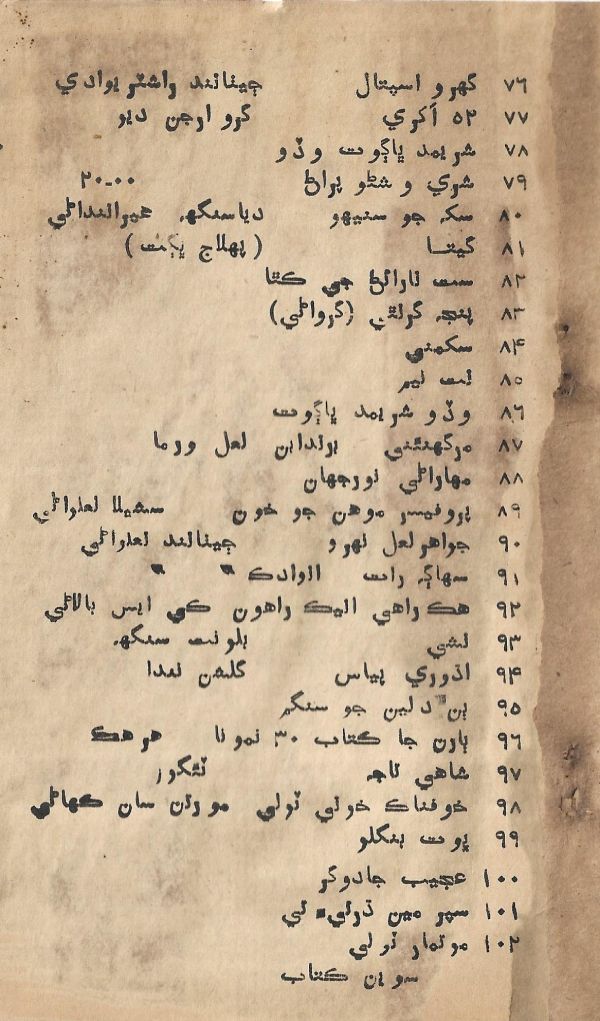 ٧٦ گهرو اسپتال چيتانند راشٽريوادي
٧٧ ٥٢ اکري گرو ارجن ديو
٧٨ شريمد ڀاڳوت وڏو
٧٩ شري وشڻو پراڻ ٢٠-٠٠
٨٠ سکه جو سنيهو دياسنگهه
٨١ گيتا (پهلاج ڀڳت)
٨٢ ست نارائڻ جي ڪٿا
٨٣ پنج گرنٿي (گرواڻي)
٨٤ سکمني
٨٥ نت نيم
٨٦ وڏو شريمد ڀاڳوت
٨٧ مرگهنئني برندابن لعل ورما
٨٨ مهاراڻي نورجهان
٨٩ پروفيسر موهن جو خون سشيلا لعلواڻي
٩٠ جواهر لعل نهرو چيتانند لعلواڻي
٩١ سهاڳ رات انوادڪ " "
٩٢ هڪ راهي انيڪ راهون ڪي ايس بالاڻي
٩٣ نشي بلونت سنگهه
٩٤ اڌوري پياس گلشن نندا
٩٥ ٻن دلين جو سنگم
٩٦ ٻارن جا ڪتاب ٣٠ نمونا هر هڪ
٩٧ شاهي تاج ٽئگور
٩٨ خوفناڪ خوني ٽولي مورتن سان ڪهاڻي
٩٩ ڀوت بنگلو
١٠٠ عجيب جادوگر
١٠١ سپر مين
١٠٢ موتمار ٽولي
سوين ڪتاب